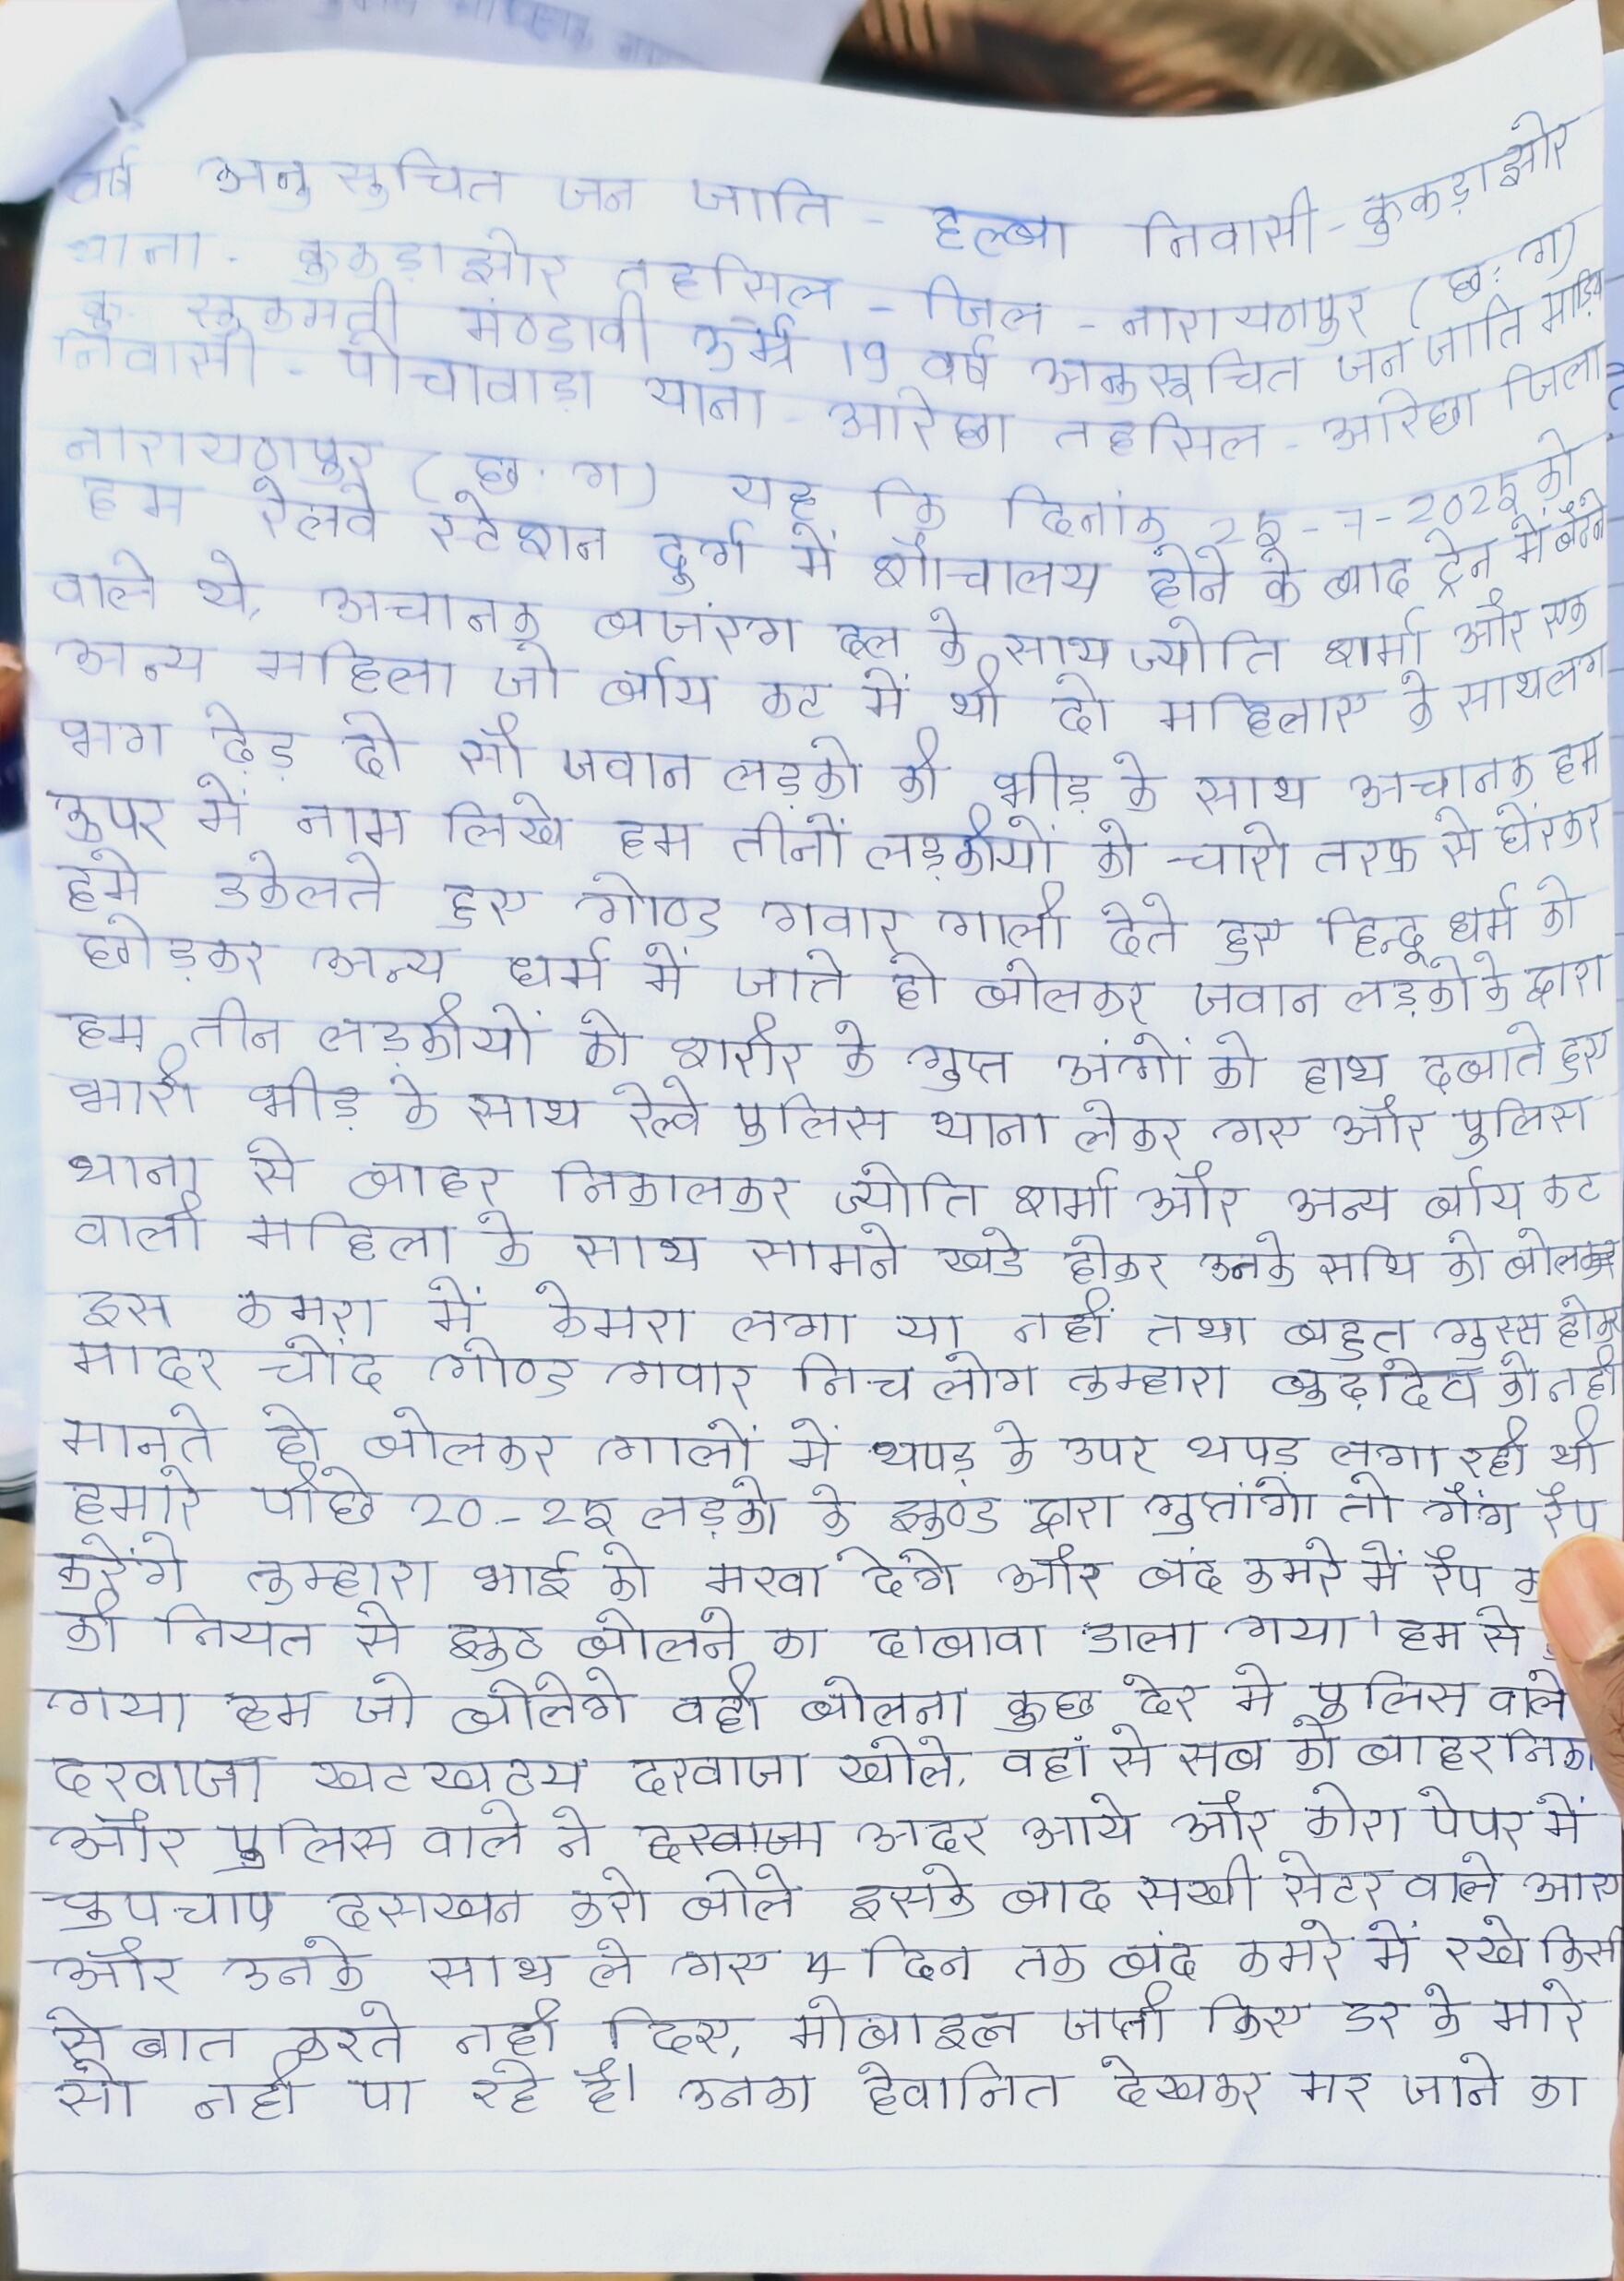 वर्ष अनु सुचित जन जाति - हल्बा निवासी - कुकड़ाझोर
थाना - कुकड़ाझोर तहसिल - जिल - नारायणपुर (छ: ग)
कु. सुकमती मंण्डावी उर्म्र 19 वर्ष अनुसूचित जन जाति माड़िय
निवासी - पोचावाड़ा थाना - ओरछा तहसिल - ओरछा जिला
नारायणपुर (छ. ग) यह कि दिनांक 25-7-2025 को
हम रेलवे स्टेशन दुर्ग में शौचालय होने के बाद ट्रेन में बैठने
वाले थे, अचानक बजंरग दल के साथ ज्योति शर्मा और एक
अन्य महिला जो र्बाय कट में थी दो महिलाए के साथ लग
भग ढ़ेड़ दो सौ जवान लड़को की भीड़ के साथ अचानक हम
ऊपर में नाम लिखे हम तीनों लड़कीयों को चारो तरफ से घेंरकर
हमे ढकेलते हुए गोण्ड गवार गाली देते हुए हिन्दू धर्म को
छोड़कर अन्य धर्म में जाते हो बोलकर जवान लड़को के द्वारा
हम तीन लड़कीयों को शरीर के गुप्त अंगों को हाथ दबाते हुए
भारी भीड़ के साथ रेल्वे पुलिस थाना लेकर गए और पुलिस
थाना से बाहर निकालकर ज्योति शर्मा और अन्य र्बाय कट
वाली महिला के साथ सामने खडे होकर उनके साथि को बोलकर
इस कमरा में केमरा लगा या नहीं तथा बहुत गुस्स होकर
मादर चोंद गोण्ड गवार निच लोग तुम्हारा बुढ़ादेव को नही
मानते हो बोलकर गालों में थपड़ के उपर थपड़ लगा रही थी
हमारे पीछे 20-25 लड़को के झुण्ड द्वारा गुप्तांगो तो गैंग रैप
करेंगे तुम्हारा भाई को मरवा देंगे और बंद कमरे में रैप
की नियत से झुठ बोलने का दाबावा डाला गया। हम से
गया हम जो बोलेगे वही बोलना कुछ देर मे पुलिस वाले
दरवाजा खटखटाय दरवाजा खोले, वहां से सब को बाहर निका
और पुलिस वाले ने दरवाजा अदर आये और कोरा पेपर में
चुपचाप दसखत करो बोले इसके बाद सखी सेटर वाले आए
और उनके साथ ले गए 4 दिन तक बंद कमरे में रखे किसी
से बात करते नही दिए, मोबाइल जप्ती किए डर के मारे
सो नही पा रहे है। उनका हेवानित देखकर मर जाने का